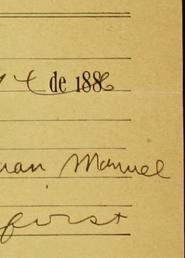 14 de 1886
uan Manuel
first